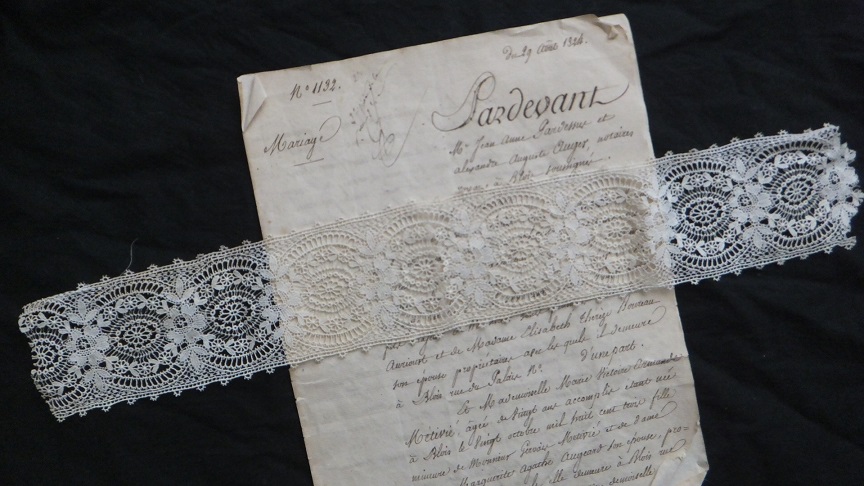 Du 29 Aoûe 1824.
N° 1132.
Pardevant
Mariage
Me Jean Anne Pardessus et
alexandre Auguste Auger, notaires
à Blois soussignés
et de Madame Elisabeth Therese
son épouse propriétaires avec les quels il demeure
à Blois rue du Palais N°.
D'une part.
Et Mademoiselle Marie Victoire
Métivié, agée de Vingt ans accomplis étant née
à Blois le Vingt octobre mil huit cent trois fille
mineure de Monsieur Gervais Métivié et de dame
Marguerite Agathe Augeard son épouse, pro-
elle demeure à Blois rue
demoiselle